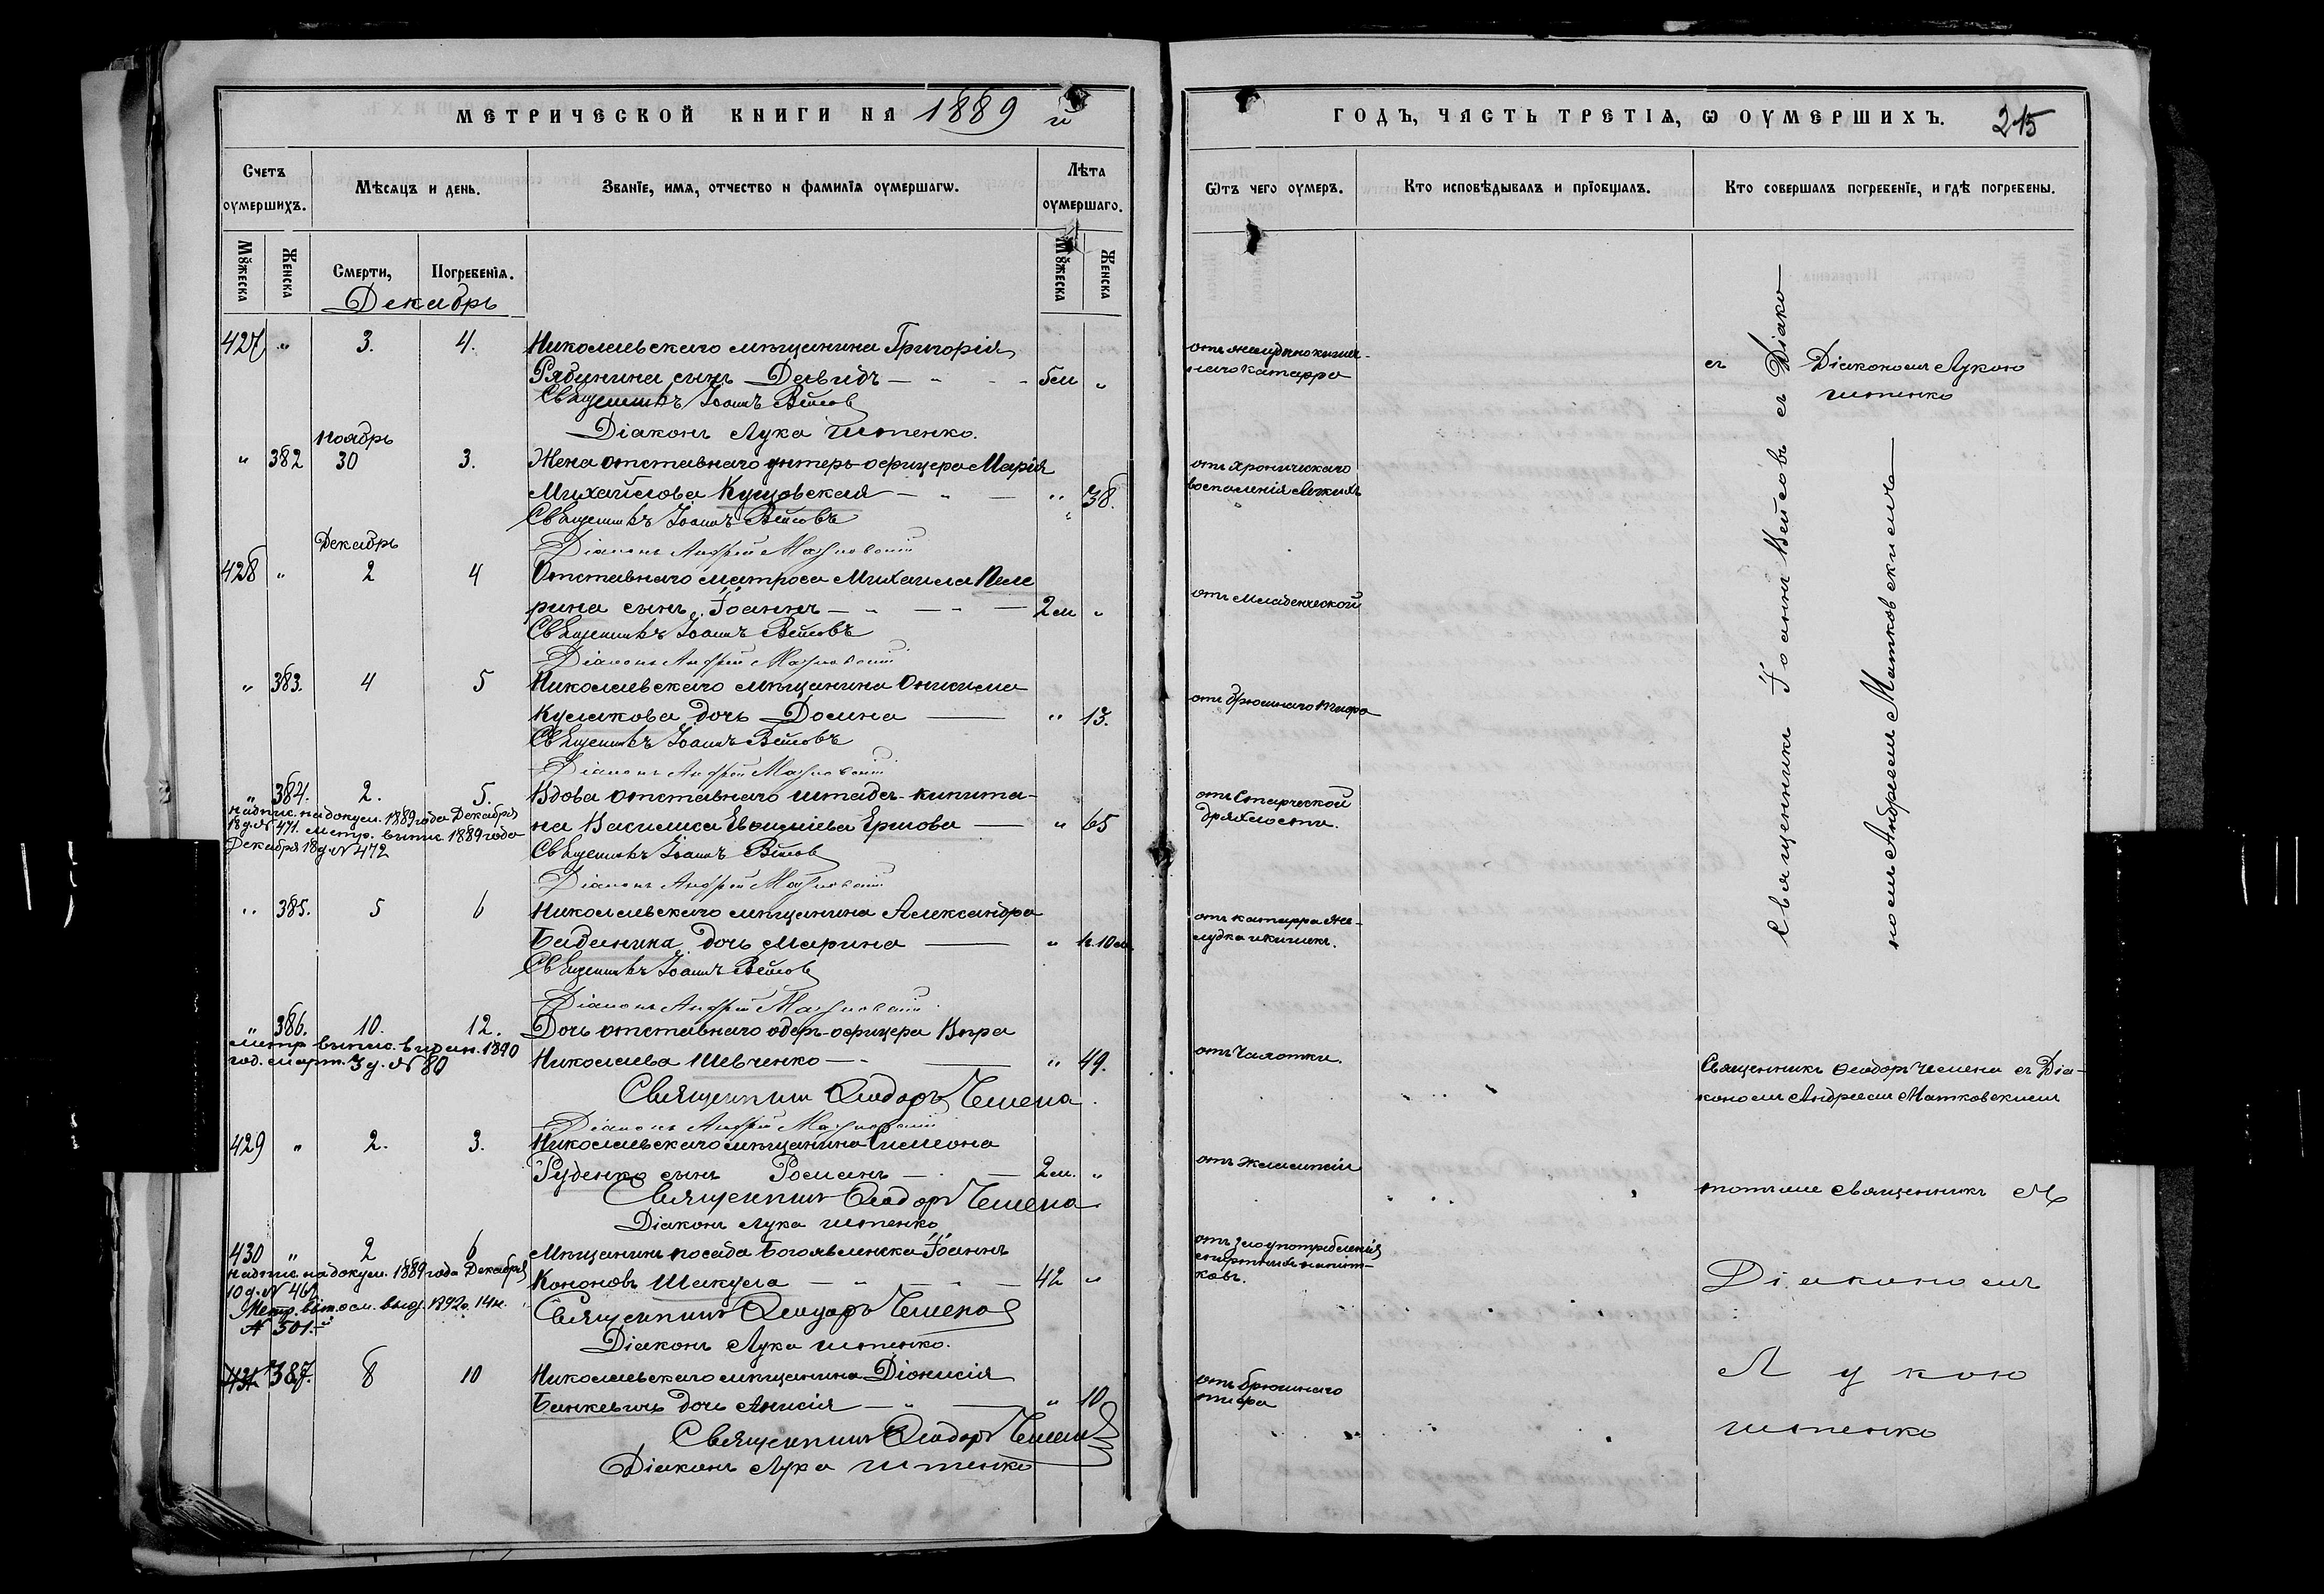 МЕТРИЧЕСКОЙ КНИГИ НА 1889 й
Счетъ оумершихъ.
Мѣсяцъ и день.
Званїе, имѧ, отчество и фамилїѧ оумершагѡ.
Лѣта оумершаго.
Мꙋжеска
Женска
Смерти,
Погребенїѧ.
Мꙋжеска
Женска
Декабрь
427 " 3. 4. Николаевскаго мѣщанина Григорія
Рябунина сынъ Давидъ — " — 5м "
Священникъ Іоаннъ Вейсов
Діаконъ Лука Штенко.
Ноябрь
" 382 30 3. Жена отставнаго унтеръ-офицера Марія
Михайлова Куцовская — " — " 38.
Священникъ Іоаннъ Вейсовъ
Діаконъ Андрей Матковскій
Декабрь
428 " 2 4 Отставнаго матроса Михаила Пеле
рина сынъ Іоаннъ — " — " — 2м "
Священникъ Іоаннъ Вейсовъ
Діаконъ Андрей Матковскій
" 383. 4 5 Николаевскаго мѣщанина Онисима
Кулакова дочь Домна — " 13.
Священникъ Іоаннъ Вейсовъ
Діаконъ Андрей Матковскій
" 384. 2. 5. Вдова отставнаго штабсъ-капита-
надпис. на докум. 1889 года Декабря
18 д. № 471. Метр. выпис. 1889 года
Декабря 18 д № 472
на Василиса Евфиміева Ершова — " 65
Священникъ Іоаннъ Вейсов
Діаконъ Андрей Матковскій
" 385. 5 6 Николаевскаго мѣщанина Александра
Баданина дочь Марина — " 10м.
Священникъ Іоаннъ Вейсов
Діаконъ Андрей Матковскій
" 386. 10. 12. Дочь отставнаго оберъ-офицера Вѣра
метр. выпис. выдан. 1890
год. март. 3 д. № 80
Николаева Шевченко — " 49.
Священникъ Ѳеодоръ Чемена
Діаконъ Андрей Матковскій
429 " 2. 3. Николаевскаго мѣщанина Симеона
Руденко сынъ Романъ — 2м. "
Священникъ Ѳеодоръ Чемена
Діаконъ Лука Штенко
430 " 2 6 Мѣщанинъ посада Богоявленска Іоаннъ
надпис. на докум. 1889 года Декабря
10 д. № 467
Метр. вып. выд. 1892 г. 14
№ 501.
Кононовъ Шакула — " — " — 42 "
Священникъ Ѳеодоръ Чемена
Діаконъ Лука Штенко.
431 387. 8 10 Николаевскаго мѣщанина Діонисія
Банкевичъ дочь Анисія — " — " 10.
Священникъ Ѳеодоръ Чемена
Діаконъ Лука Штенко
ГОДЪ, ЧАСТЬ ТРЕТІѦ, Ѡ ОУМЕРШИХЪ. 215
Ѿтъ чего оумеръ.
Кто исповѣдывалъ и прїобщалъ.
Кто совершалъ погребенїе, и гдѣ погребены.
отъ желудочно кишеч-
наго катарра
съ Діакономъ Лукою
Штенко
Священникъ Іоаннъ Вейсовъ съ Діако-
номъ Андреемъ Матковскимъ
отъ хроническаго
воспаленія легкихъ
отъ младенческой
отъ брюшнаго тифа
отъ Старческой
дряхлости.
отъ катарра же-
лудка и кишекъ.
отъ Чахотки.
Священникъ Ѳеодоръ Чемена съ Діа-
кономъ Андреемъ Матковскимъ
отъ эклампсіи
тотъ же Священникъ
отъ злоупотребленія
спиртныхъ напит-
ковъ.
Діакономъ
Лукою
Штенко
отъ брюшнаго
тифа